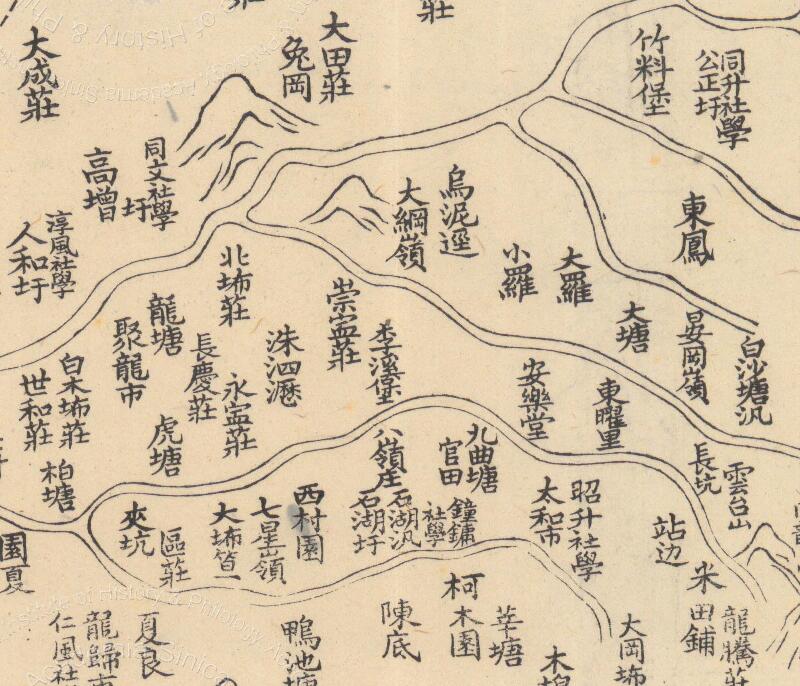 竹料堡
同升社學
公正圩
大田莊
兔岡
大成莊
莊
同文社學
圩
高增
淳風社學
人和圩
烏泥逕
大綱嶺
東鳳
大羅
小羅
大塘
晏岡嶺
白沙塘汛
北埗莊
崇寍莊
李溪堡
龍塘
聚龍市
長慶莊
洙泗瀝
永寍莊
白木埗莊
世和莊
柏塘
虎塘
安樂堂
東曜里
長坑
雲台山
九曲塘
官田
八嶺庄
石湖汛
石湖圩
鐘鏞
社學
西村園
七星嶺
大埗
夾坑
區莊
昭升社學
太和市
站边
米田鋪
龍騰莊
大岡埗
莘塘
柯木園
陳底
鴨池塘
夏良
龍歸市
仁風社
園夏
木